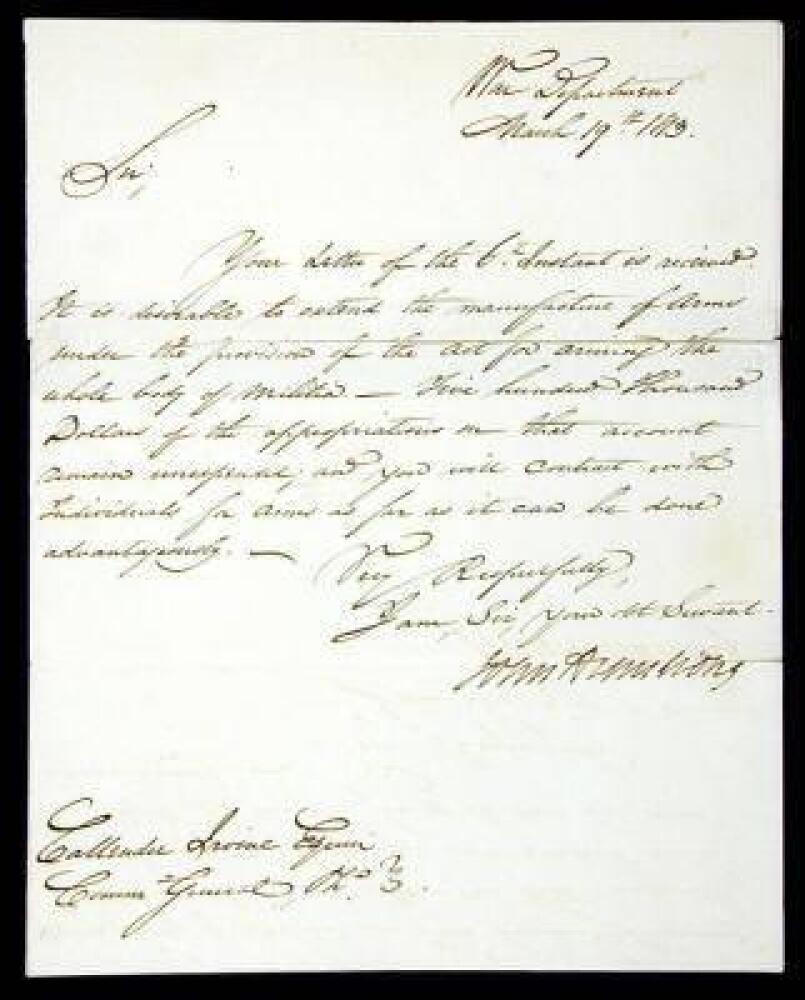 War Department
March 19th 1813.
Sir,
Your Letter of the 6th Instant is received.
It is desirable to extend the manufacture of Arms
under the provision of the act for arming the
whole body of Militia — Five hundred thousand
Dollars of the appropriations on that account
remain unexpended, and you will contract with
Individuals for Arms as far as it can be done
advantageously. —
Very Respectfully,
I am, Sir, your Obt Servant.
John Armstrong
Callender Irvine Esquire
Commy General, Pha.